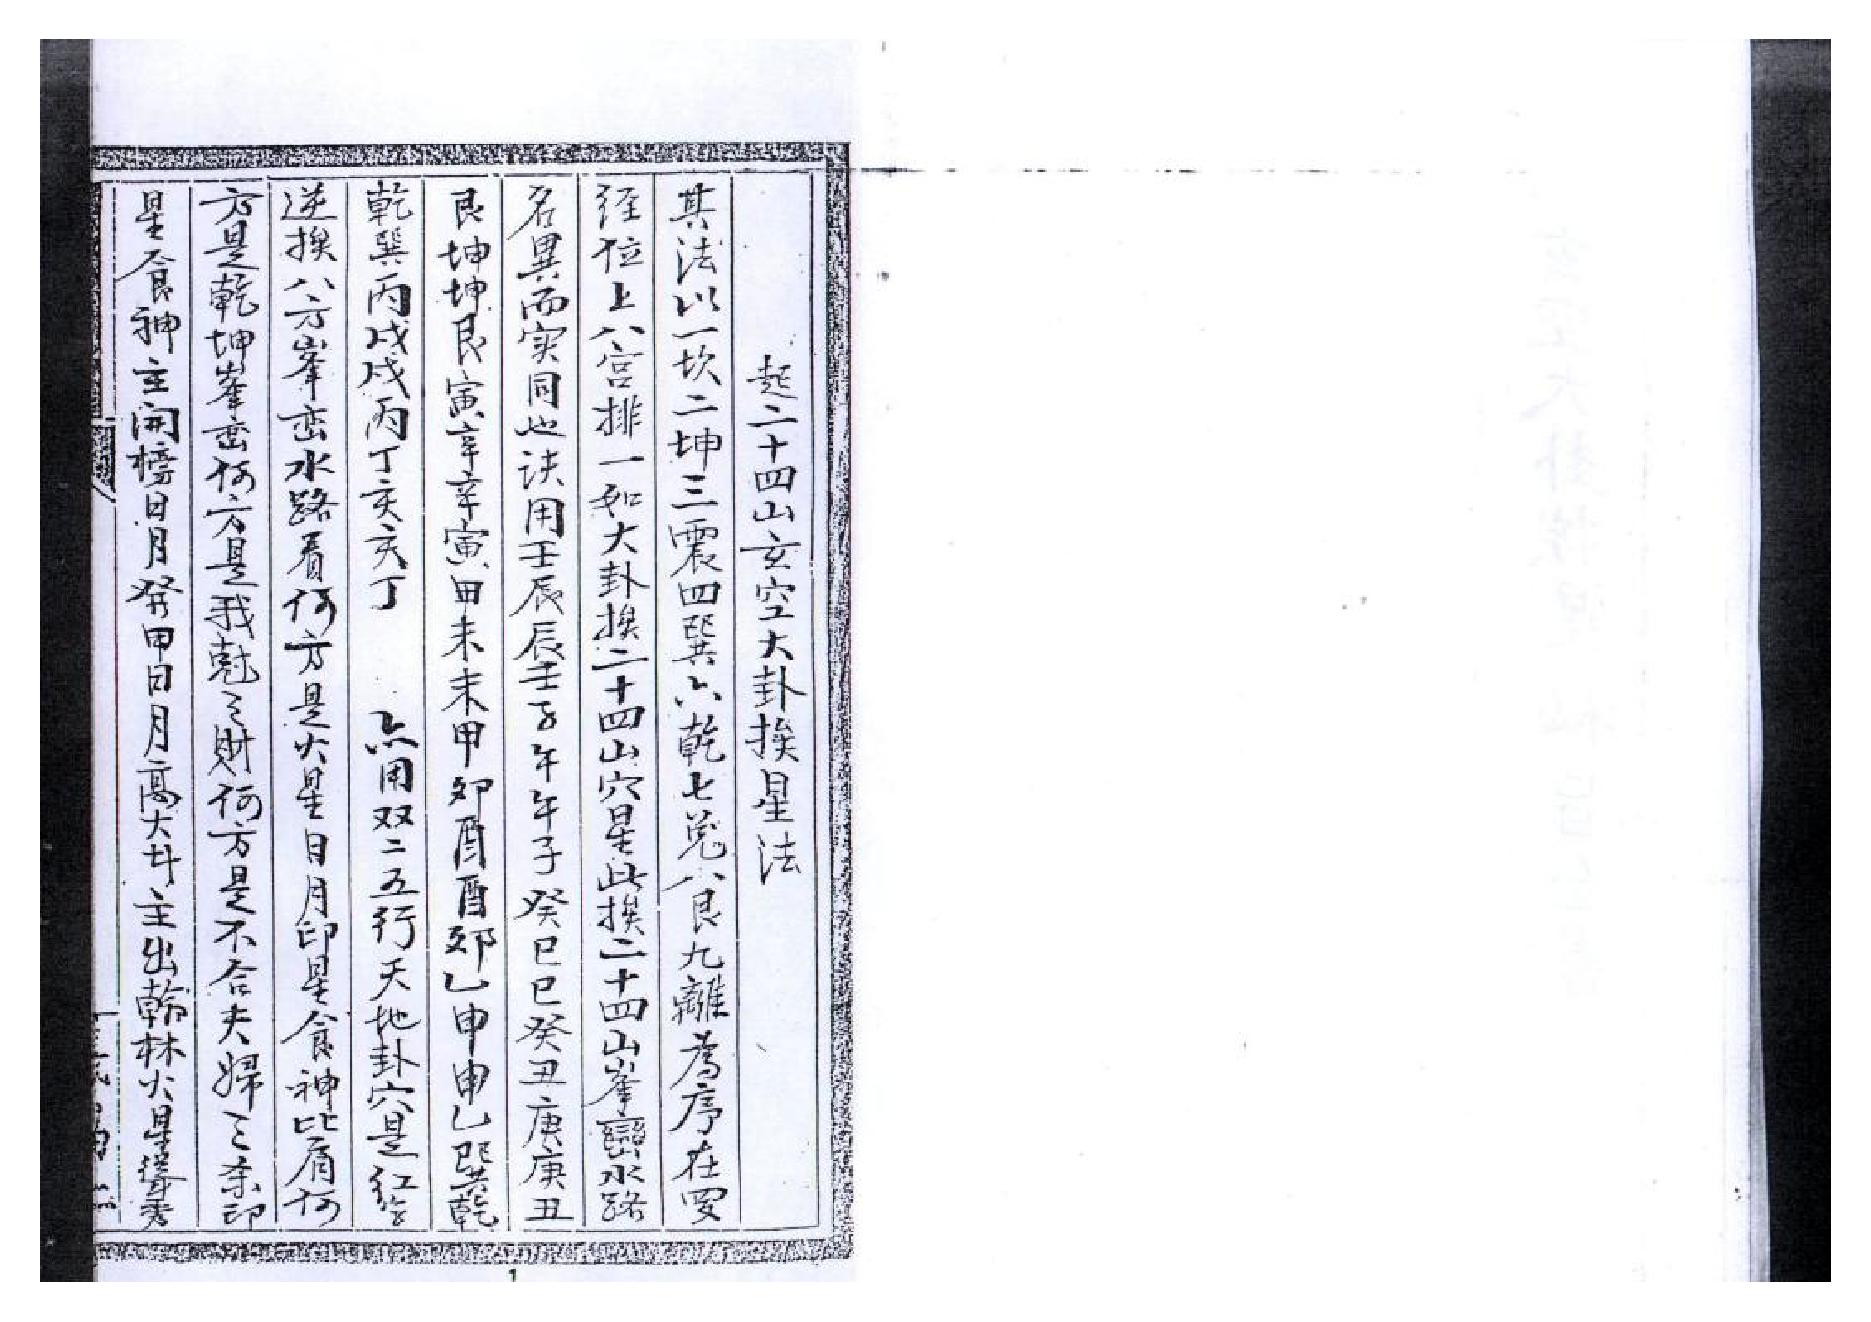 起二十四山玄空大卦挨星法
其法以一坎二坤三震四巽六乾七兑八艮九離為序在
经位上八宫排一如大卦挨二十四山穴星此挨二十四山峯巒水路
名異而实同也诀用壬辰辰壬子午午子癸巳巳癸丑庚庚丑
艮坤坤艮寅辛辛寅甲未未甲卯酉酉卯乙申申乙巽乾
乾巽丙戌戌丙丁亥亥丁 用双二五行天地卦穴是红
逆挨八方峯峦水路看何方是火星日月印星食神比肩何
方是乾坤峯峦何方是我尅之財何方是不合夫婦之杀印
星食神主開榜日月癸甲日月高大廾主出翰林火星聳秀
1